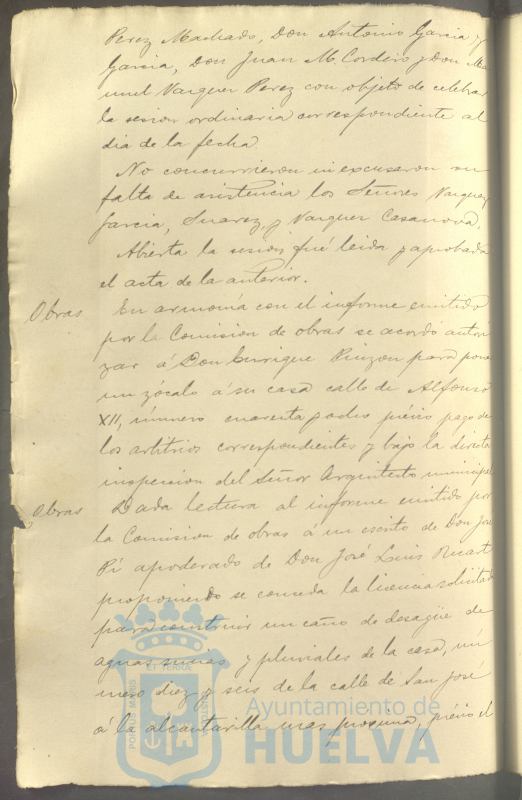 Perez Machado, Don Antonio Garcia y
Garcia, Don Juan M. Cordero y Don Ma
nuel Vazquez Perez con objeto de celebrar
la sesion ordinaria correspondiente al
dia de la fecha.
No concurrieron ni excusaron su
falta de asistencia los Señores Vazquez
Garcia, Suarez, y Vazquez Casanova.
Abierta la sesion fué leida y aprobada
el acta de la anterior.
Obras En armonía con el informe emitido
por la Comision de obras se acordo autori
zar á Don Enrique Pinzon para poner
un zócalo á su casa calle de Alfonso
XII, número cuarenta y ocho prévio pago de
los arbitrios correspondientes y bajo la directa
inspeccion del Señor Arquitecto municipal
Obras Dada lectura al informe emitido por
la Comision de obras á un escrito de Don José
Pí apoderado de Don José Luis
proponiendo se conceda la licencia solicitada
para construir un caño de desagüe de
aguas sucias y pluviales de la casa, nú
mero diez y seis de la calle de San José
á la alcantarilla mas proxima, prévio el
PORTUS MARIS ET TERRAE CUSTODIA
Ayuntamiento de
HUELVA